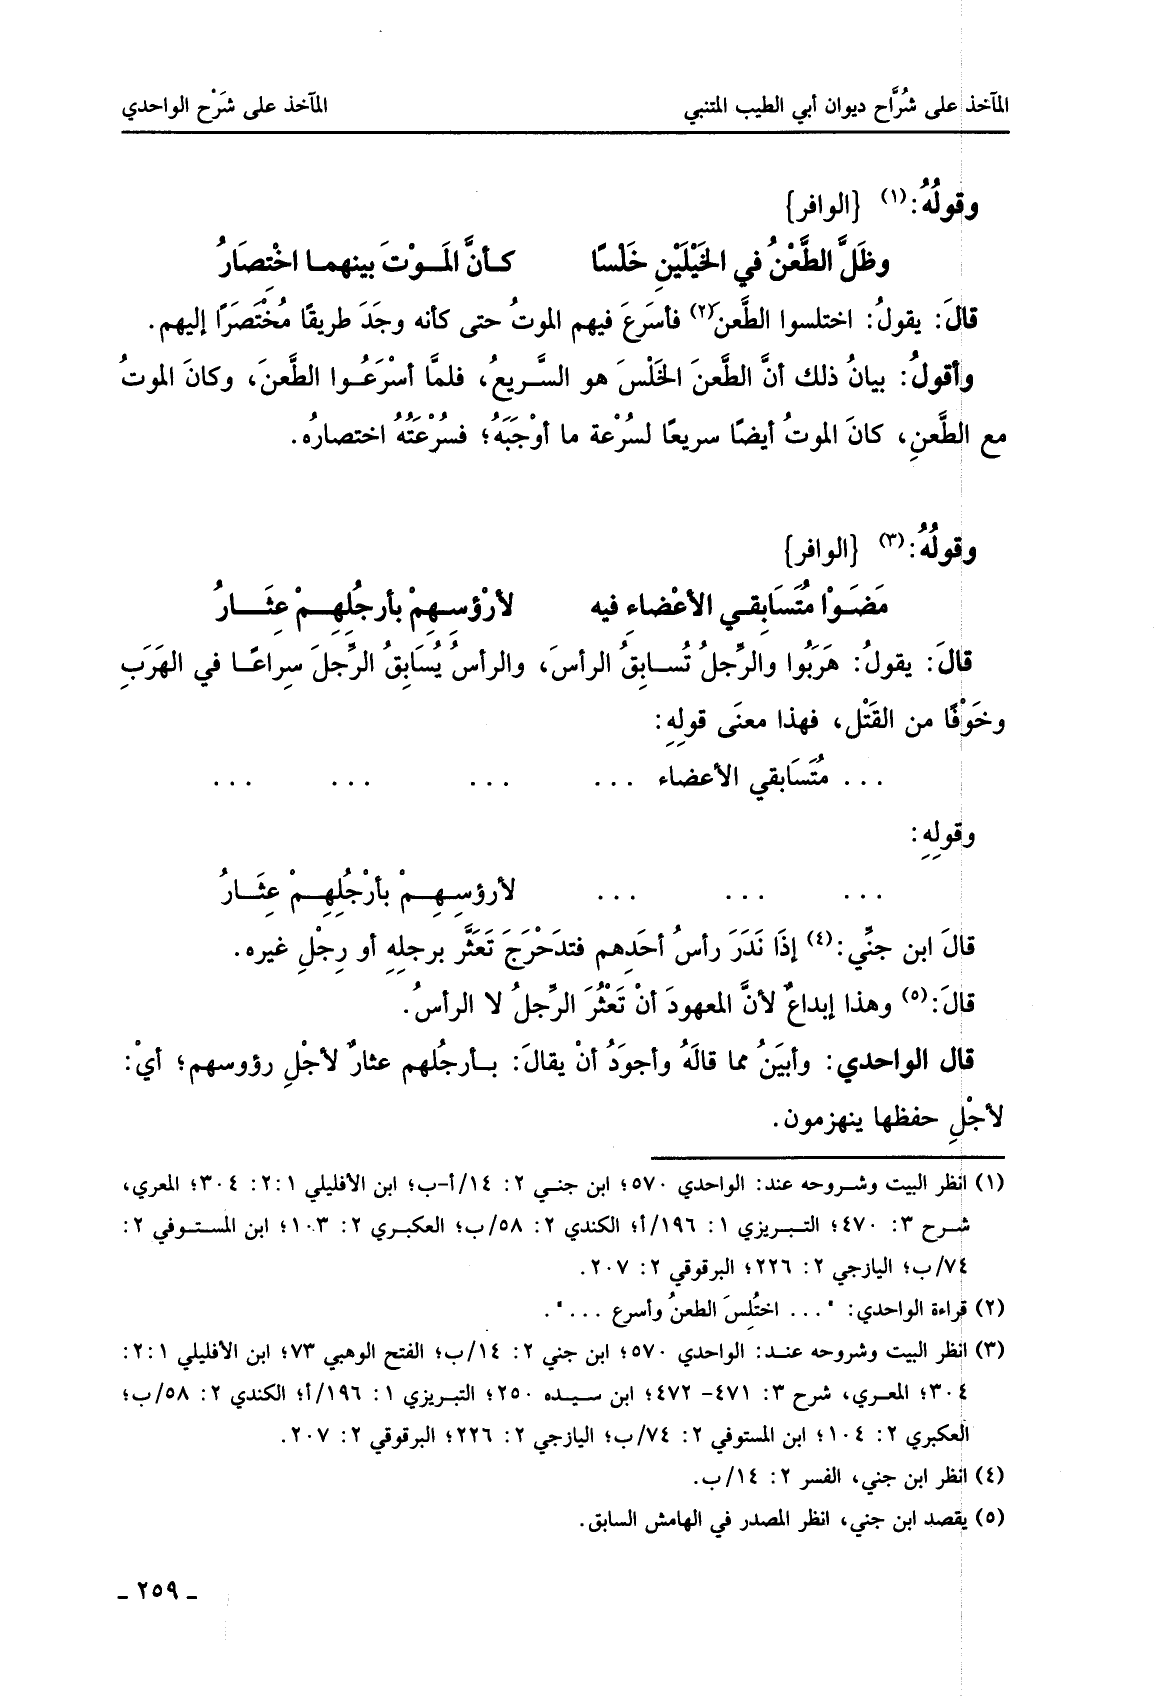 المآخذ على شُرَّاح ديوان أبي الطيب المتنبي المآخذ على شَرْح الواحدي
وقولُهُ:(١) {الوافر}
وظَلَّ الطَّعْنُ في الخَيْلَيْنِ خَلْسًا كـأنَّ المَـوْتَ بينهمـا اخْتِصَارُ
قالَ: يقولُ: اختلسوا الطَّعن(٢) فأسرَعَ فيهم الموتُ حتى كأنه وجَدَ طريقًا مُخْتَصَرًا إليهم.
وأقولُ: بيانُ ذلك أنَّ الطَّعنَ الخَلْسَ هو السَّريعُ، فلمَّا أسْرَعُوا الطَّعنَ، وكانَ الموتُ
مع الطَّعنِ، كانَ الموتُ أيضًا سريعًا لسُرْعة ما أوْجَبَهُ؛ فسُرْعَتُهُ اختصارُه.
وقولُهُ:(٣) {الوافر}
مَضَوْا مُتَسَابِقـي الأعْضاء فيه لأرْؤسـهِمْ بأرجُلِهـمْ عثَـــارُ
قالَ: يقولُ: هَرَبُوا والرِّجلُ تُسـابقُ الرأسَ، والرأسُ يُسَابِقُ الرِّجلَ سِراعًـا في الهَرَبِ
وخَوْفًا من القَتْل، فهذا معنَى قولِهِ:
... مُتَسَابقي الأعضاء ... ... ... ...
وقولِهِ:
... ... ... لأرؤسِـهِـمْ بأرْجُلِهِـمْ عِثَـارُ
قالَ ابن جنِّي:(٤) إذَا نَدَرَ رأسُ أحَدِهم فتدَحْرَجَ تَعَثَّر برجلِهِ أو رِجْلِ غيره.
قالَ:(٥) وهذا إبداعٌ لأنَّ المعهودَ أنْ تَعْثُرَ الرِّجلُ لا الرأسُ.
قال الواحدي: وأبيَنُ مما قالَهُ وأجوَدُ أنْ يقالَ: بـأرجُلهم عثارٌ لأجْلِ رؤوسهم؛ أيْ:
لأجْلِ حفظها ينهزمون.
(١) انظر البيت وشـروحه عند: الواحدي ٥٧٠؛ ابن جنـي ٢: ١٤/أ-ب؛ ابن الأفليلي ٢:١: ٣٠٤؛ المعري،
شـرح ٣: ٤٧٠؛ التـبـريزي ١: ١٩٦/أ؛ الكندي ٢: ٥٨/ب؛ العكبري ٢: ١٠٣؛ ابن المسـتـوفي ٢:
٧٤/ب؛ اليازجي ٢: ٢٢٦؛ البرقوقي ٢: ٢٠٧.
(٢) قراءة الواحدي: "... اختُلِسَ الطعنُ وأسرع ...".
(٣) انظر البيت وشروحه عنـد: الواحدي ٥٧٠؛ ابن جني ٢: ١٤/ب؛ الفتح الوهبي ٧٣؛ ابن الأفليلي ٢:١:
٣٠٤؛ المعـري، شرح ٣: ٤٧١- ٤٧٢؛ ابن سـيـده ٢٥٠؛ التبـريزي ١: ١٩٦/أ؛ الكندي ٢: ٥٨/ب؛
العكبري ٢: ١٠٤؛ ابن المستوفي ٢: ٧٤/ب؛ اليازجي ٢: ٢٢٦؛ البرقوقي ٢: ٢٠٧.
(٤) انظر ابن جني، الفسر ٢: ١٤/ب.
(٥) يقصد ابن جني، انظر المصدر في الهامش السابق.
ـ ٢٥٩ ـ